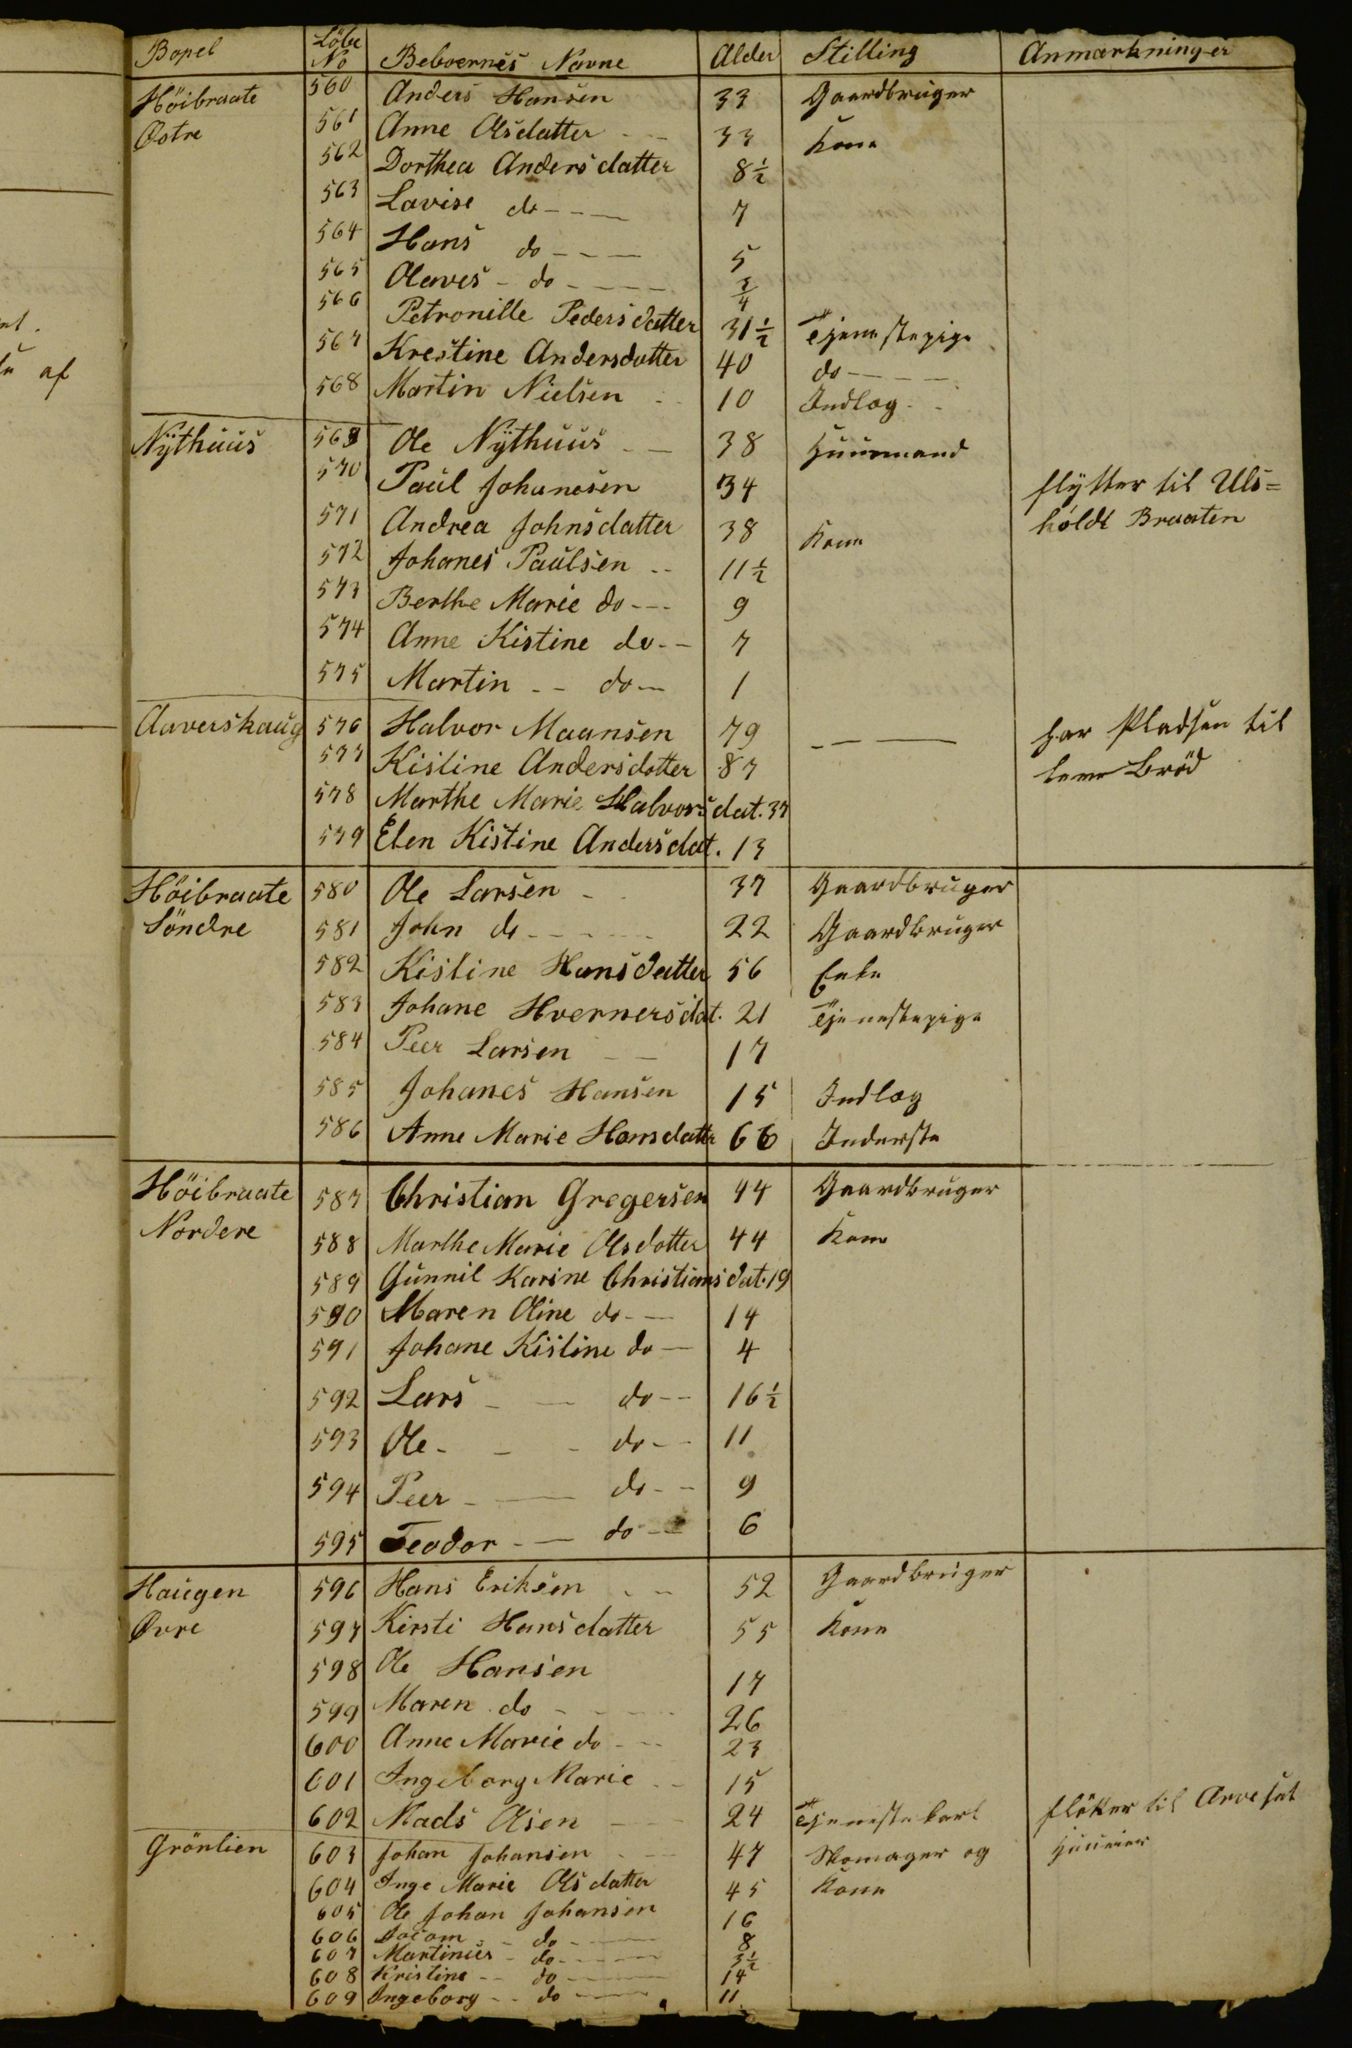 Bopel Löbe No Beboernes Navne Alder Stilling Anmærkninger
Höibraate 560 Anders Hansen 33 Gaardbruger
Østre 561 Anne Olsdatter 33 Kone
562 Dorthea Andersdatter 8½
563 Lovise do 7
564 Hans do 5
565 Olaves do ¾
566 Petronille Pedersdatter 31½ Tjenestepige
567 Krestine Andersdatter 40 do
568 Martin Nielsen 10 Indlæg
Nÿthuus 569 Ole Nÿthuus 38 Huusmand
570 Paul Johanesen 34 flÿtter til Uls=
571 Andrea Johnsdatter 38 Kone holdt Braaten
572 Johanes Paulsen 11½
573 Berthe Marie do 9
574 Anne Kistine do 7
575 Martin do 1
Aaverskaug 576 Halvor Maansen 79 har Pladsen til
577 Kistine Andersdatter 87 leve Bröd
578 Marthe Marie Halvorsdat. 37
579 Elen Kistine Andersdat. 13
Höibraate 580 Ole Larsen 37 Gaardbruger
Söndre 581 John do 22 Gaardbruger
582 Kistine Hansdatter 56 Enke
583 Johane Hvernersdat. 21 Tjenestepige
584 Peer Larsen 17
585 Johanes Hansen 15 Indlæg
586 Anne Marie Hansdatter 66 Inderste
Höibraate 587 Christian Gregersen 44 Gaardbruger
Nordere 588 Marthe Marie Olsdatter 44 Kone
589 Gunnil Karine Christiansdat. 19
590 Maren Oline do 14
591 Johane Kistine do 4
592 Lars do 16½
593 Ole do 11
594 Peer do 9
595 Teodor do 6
Haugen 596 Hans Eriksen 52 Gaardbruger
Øvre 597 Kirsti Hansdatter 55 Kone
598 Ole Hansen 17
599 Maren do 26
600 Anne Marie do 23
601 Ingeborg Marie 15
602 Mads Olsen 24 Tjenestekarl flötter til Arveset
Grönlien 603 Johan Johansen 47 Skomager og Huuseier
604 Inge Marie Olsdatter 45 Kone
605 Ole Johan Johansen 16
606 Jocom do 8
607 Martinus do 3½
608 Kristine do 14
609 Ingeborg do 11